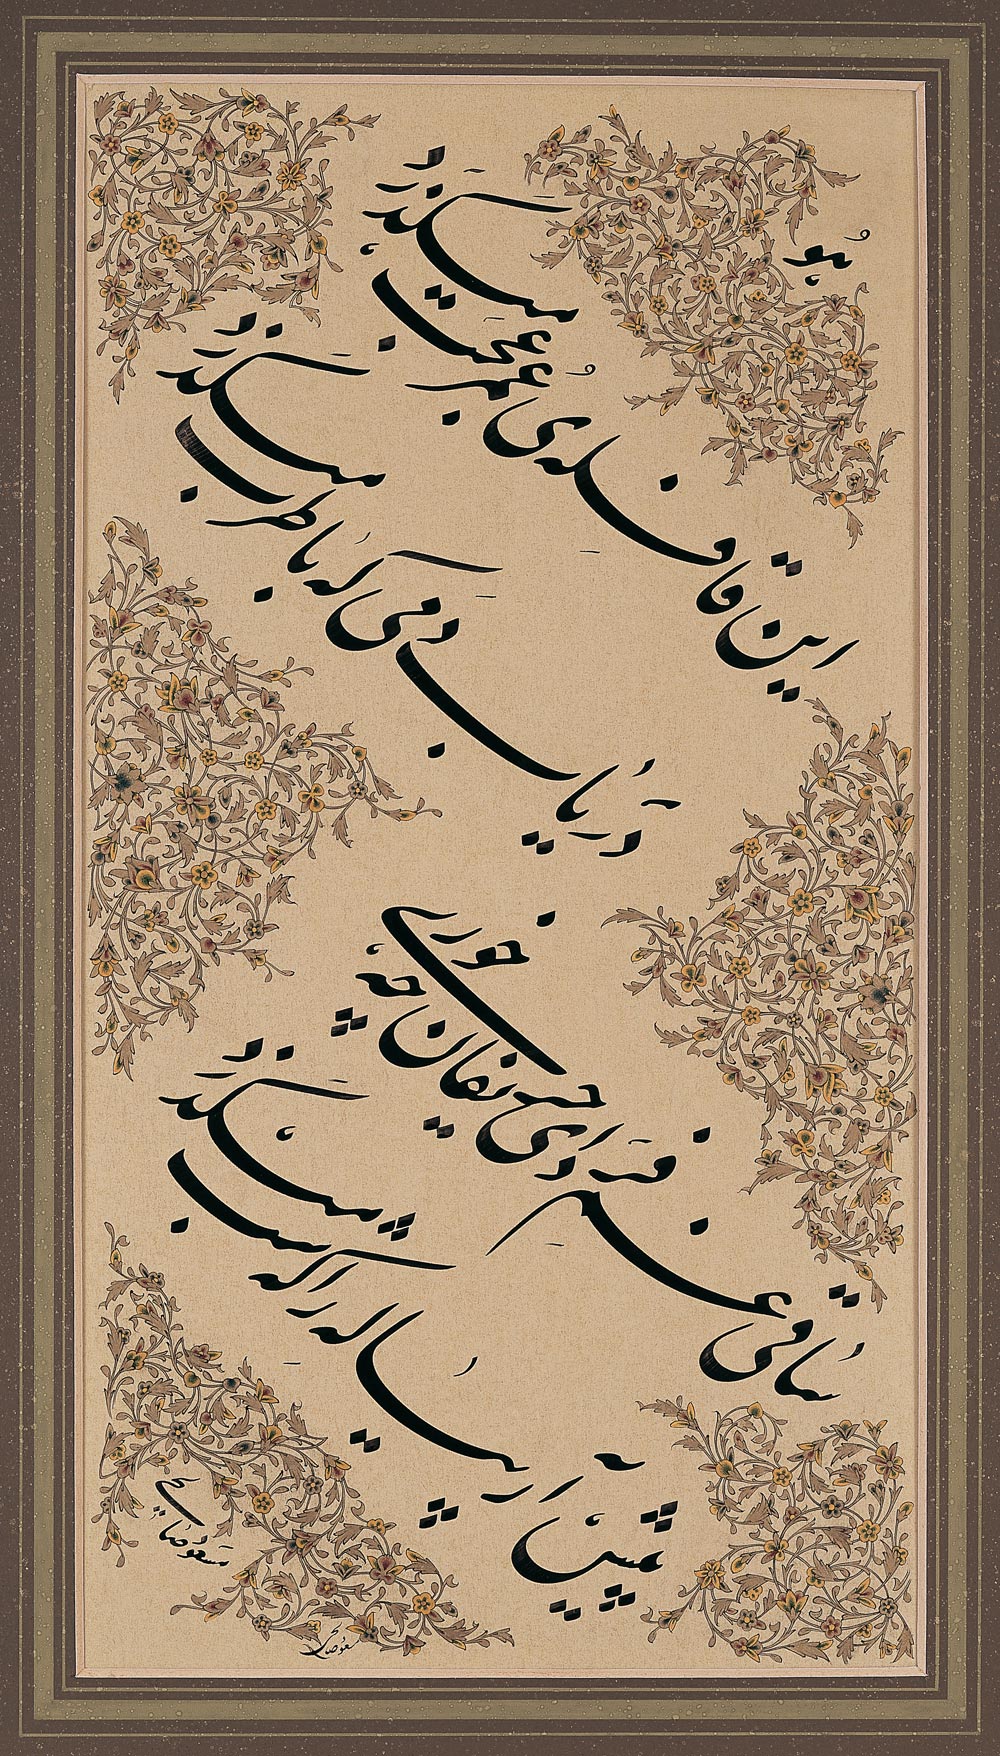 هو
این قافله‌ی عمر عجب میگذرد
دریاب دمی که با طرب میگذرد
ساقی غم فردای حریفان چه خوری
پیش آر پیاله را که شب میگذرد
مسعود صالحی